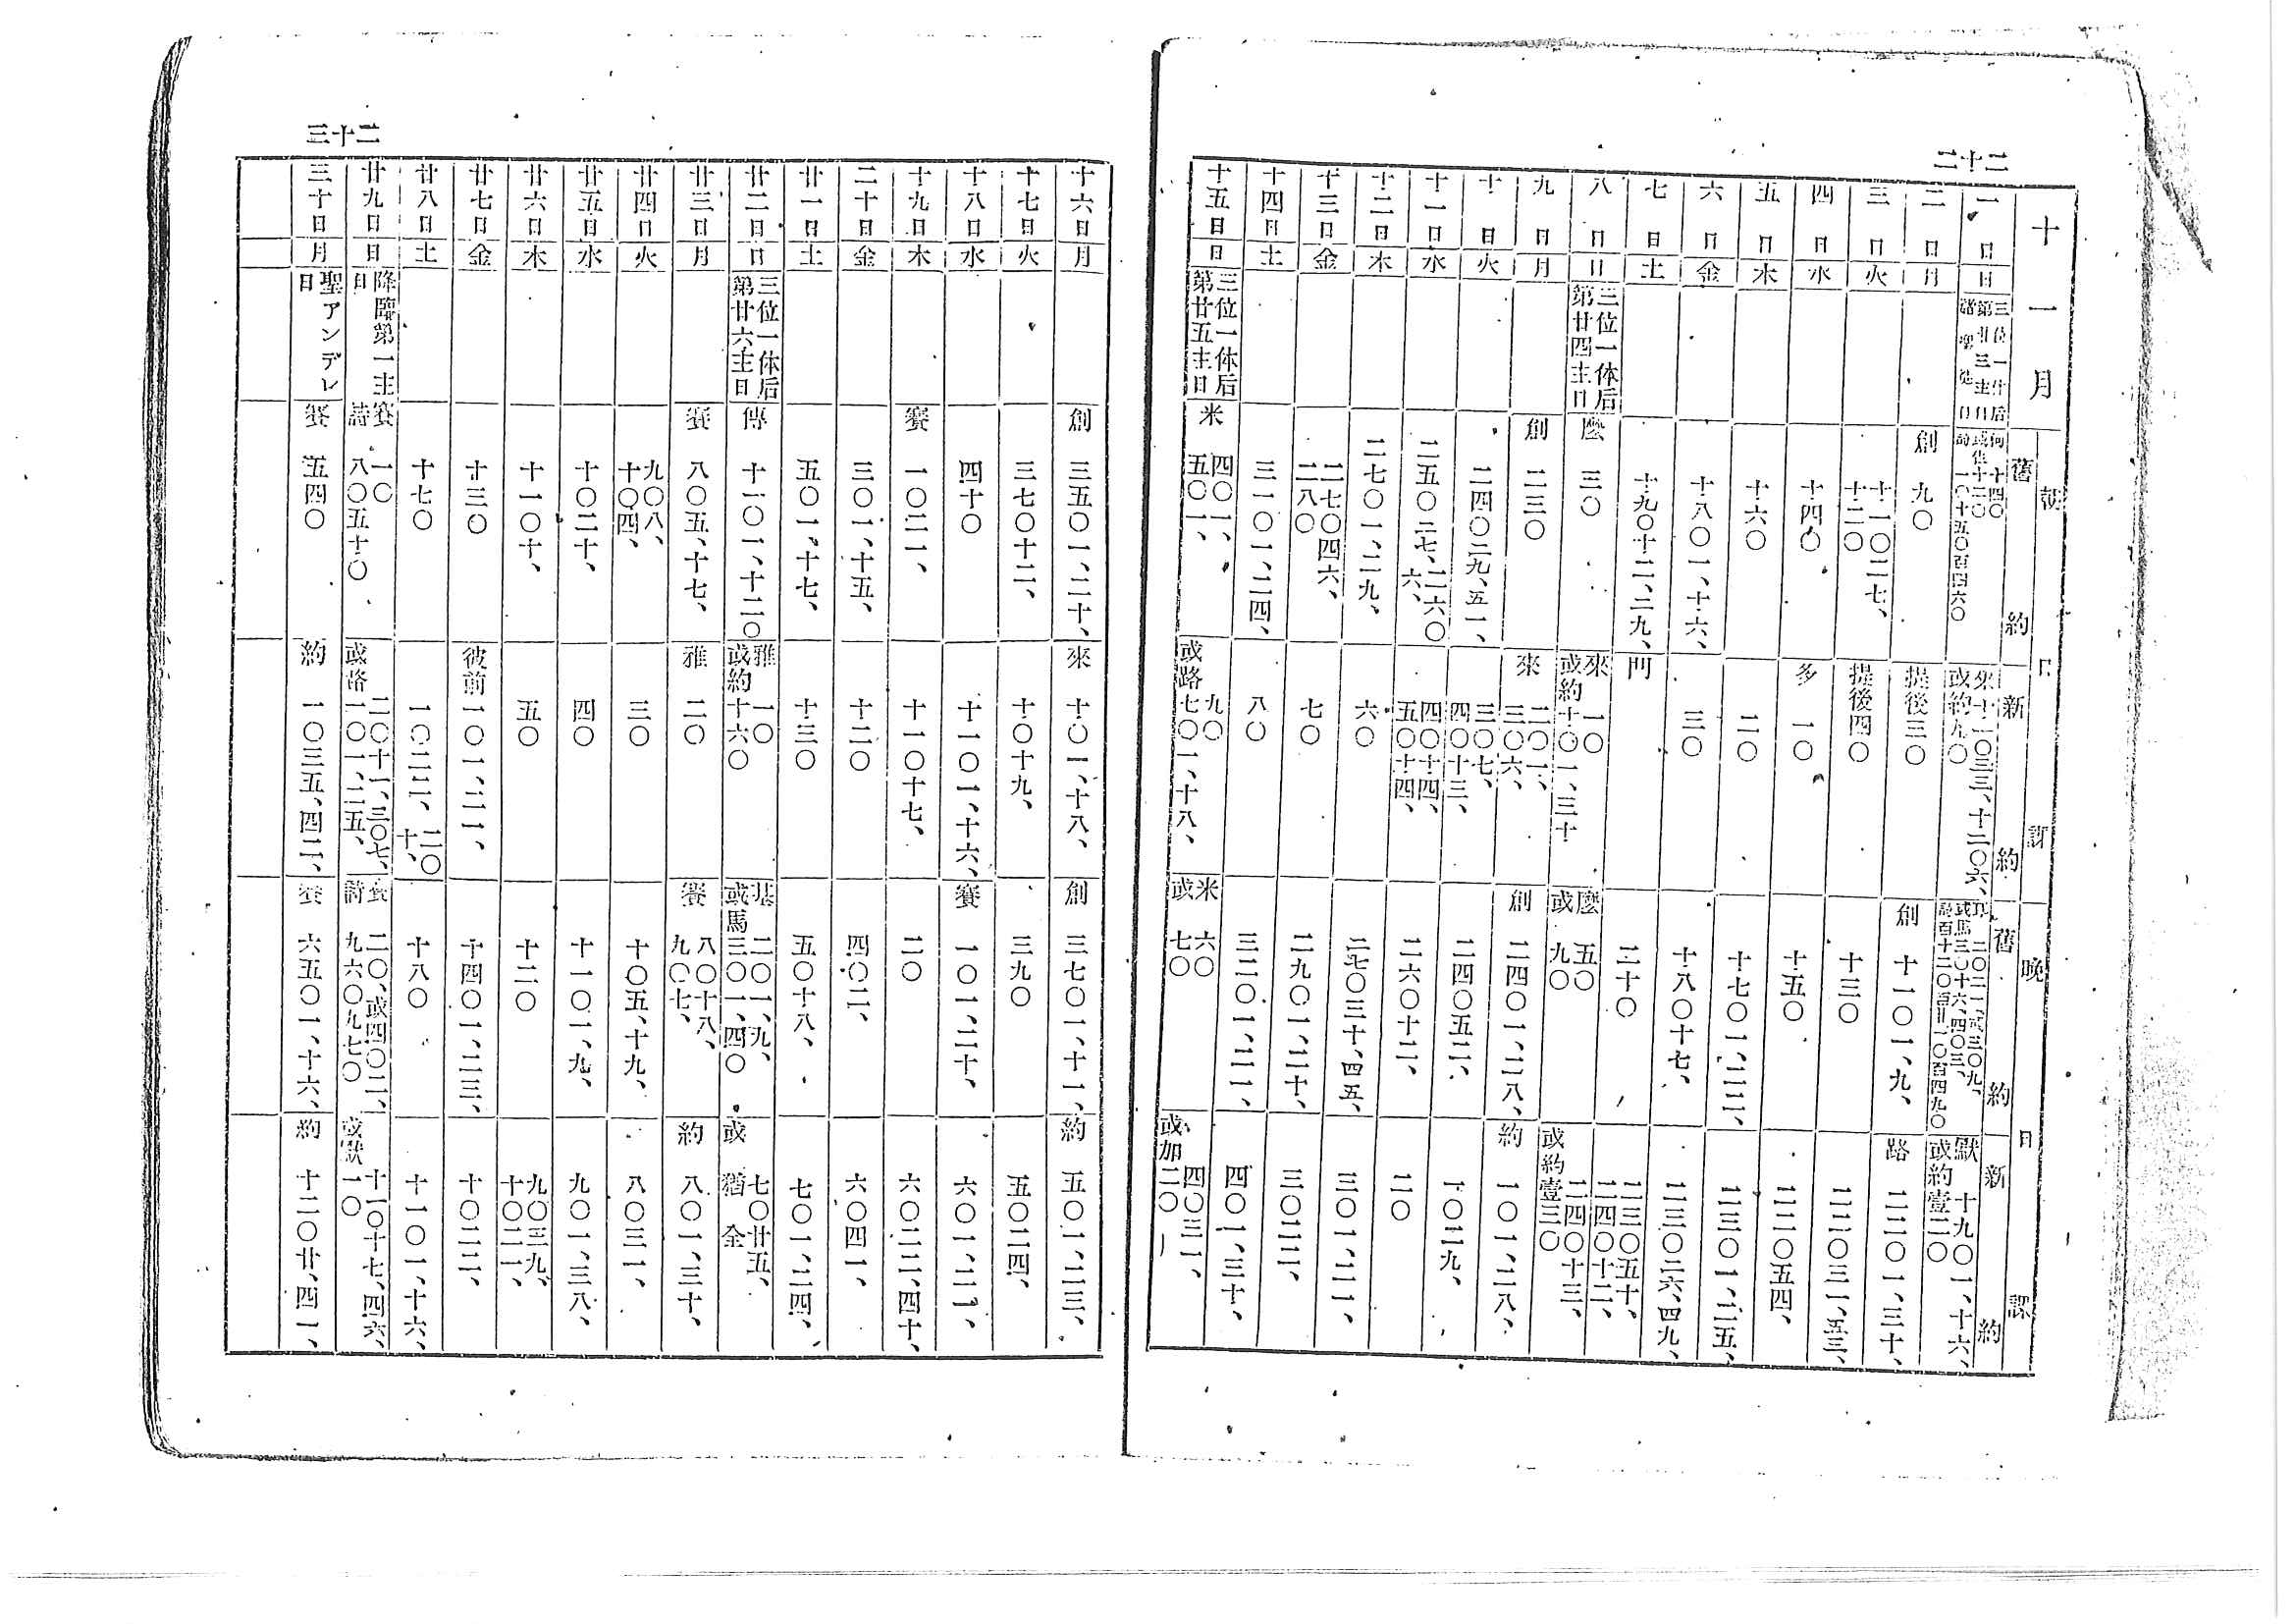 二十二
十一月
朝日課
晩日課
舊約
新約
舊約
新約
一日 日 三位一体后第廿三主日 諸聖徒日
二日 月 創 九〇 提後三〇 創 十一〇一、九、 路 二二〇一、三十、
三日 火 十一〇二七、十二〇 提後四〇 十三〇 二二〇三一、五三、
四日 水 十四〇 多 一〇 十五〇 二二〇五四、
五日 木 十六〇 二〇 十七〇一、二二、 二三〇一、二五、
六日 金 十八〇一、十六、 三〇 十八〇十七、 二三〇二六、四九、
七日 土 十九〇十二、二九、 門 二十〇 二三〇五十、二四〇十二、
八日 日 三位一体后第廿四主日 麼 三〇 來 一〇 或約十〇一、三十 麼 五〇 或 九〇 二四〇十三、 或約壹三〇
九日 月 創 二三〇 來 二〇一、三〇六、 創 二四〇一、二八、 約 一〇一、二八、
十日 火 二四〇二九、五一、 三〇七、四〇十三、 二四〇五二、 一〇二九、
十一日 水 二五〇二七、二六〇六、 四〇十四、五〇十四、 二六〇十二、 二〇
十二日 木 二七〇一、二九、 六〇 二七〇三十、四五、 三〇一、二一、
十三日 金 二七〇四六、二八〇 七〇 二九〇一、二十、 三〇二二、
十四日 土 三一〇一、二四、 八〇 三二〇一、二一、 四〇一、三十、
十五日 日 三位一体后第廿五主日 米 四〇一、五〇一、 九〇 或路七〇一、十八、 米 六〇 或 七〇 四〇三一、 或加二〇
二十三
十六日 月 創 三五〇一、二十、 來 十〇一、十八、 創 三七〇一、十一、 約 五〇一、二三、
十七日 火 三七〇十二、 十〇十九、 三九〇 五〇二四、
十八日 水 四十〇 十一〇一、十六、 賽 一〇一、二十、 六〇一、二一、
十九日 木 賽 一〇二一、 十一〇十七、 二〇 六〇二二、四十、
二十日 金 三〇一、十五、 十二〇 四〇二、 六〇四一、
廿一日 土 五〇一、十七、 十三〇 五〇十八、 七〇一、二四、
廿二日 日 三位一体后第廿六主日 傳 十一〇一、十二〇 雅 一〇 或約十六〇 基 二〇一、九、 或馬三〇一、四〇 七〇廿五、 或 猶 全
廿三日 月 賽 八〇五、十七、 雅 二〇 賽 八〇十八、九〇七、 約 八〇一、三十、
廿四日 火 九〇八、十〇四、 三〇 十〇五、十九、 八〇三一、
廿五日 水 十〇二十、 四〇 十一〇一、九、 九〇一、三八、
廿六日 木 十一〇十、 五〇 十二〇 九〇三九、十〇二一、
廿七日 金 十三〇 彼前一〇一、二一、 十四〇一、二三、 十〇二二、
廿八日 土 十七〇 一〇二二、二〇十、 十八〇 十一〇一、十六、
廿九日 日 降臨第一主日 賽 一〇 詩 八〇五十〇 二〇十一、三〇七、 或路一〇一、二五、 賽 二〇、或四〇二、 詩 九六〇九七〇 十一〇十七、四六、 或默一〇
三十日 月 聖アンデレ日 賽 五四〇 約 一〇三五、四二、 賽 六五〇一、十六、 約 十二〇廿、四一、